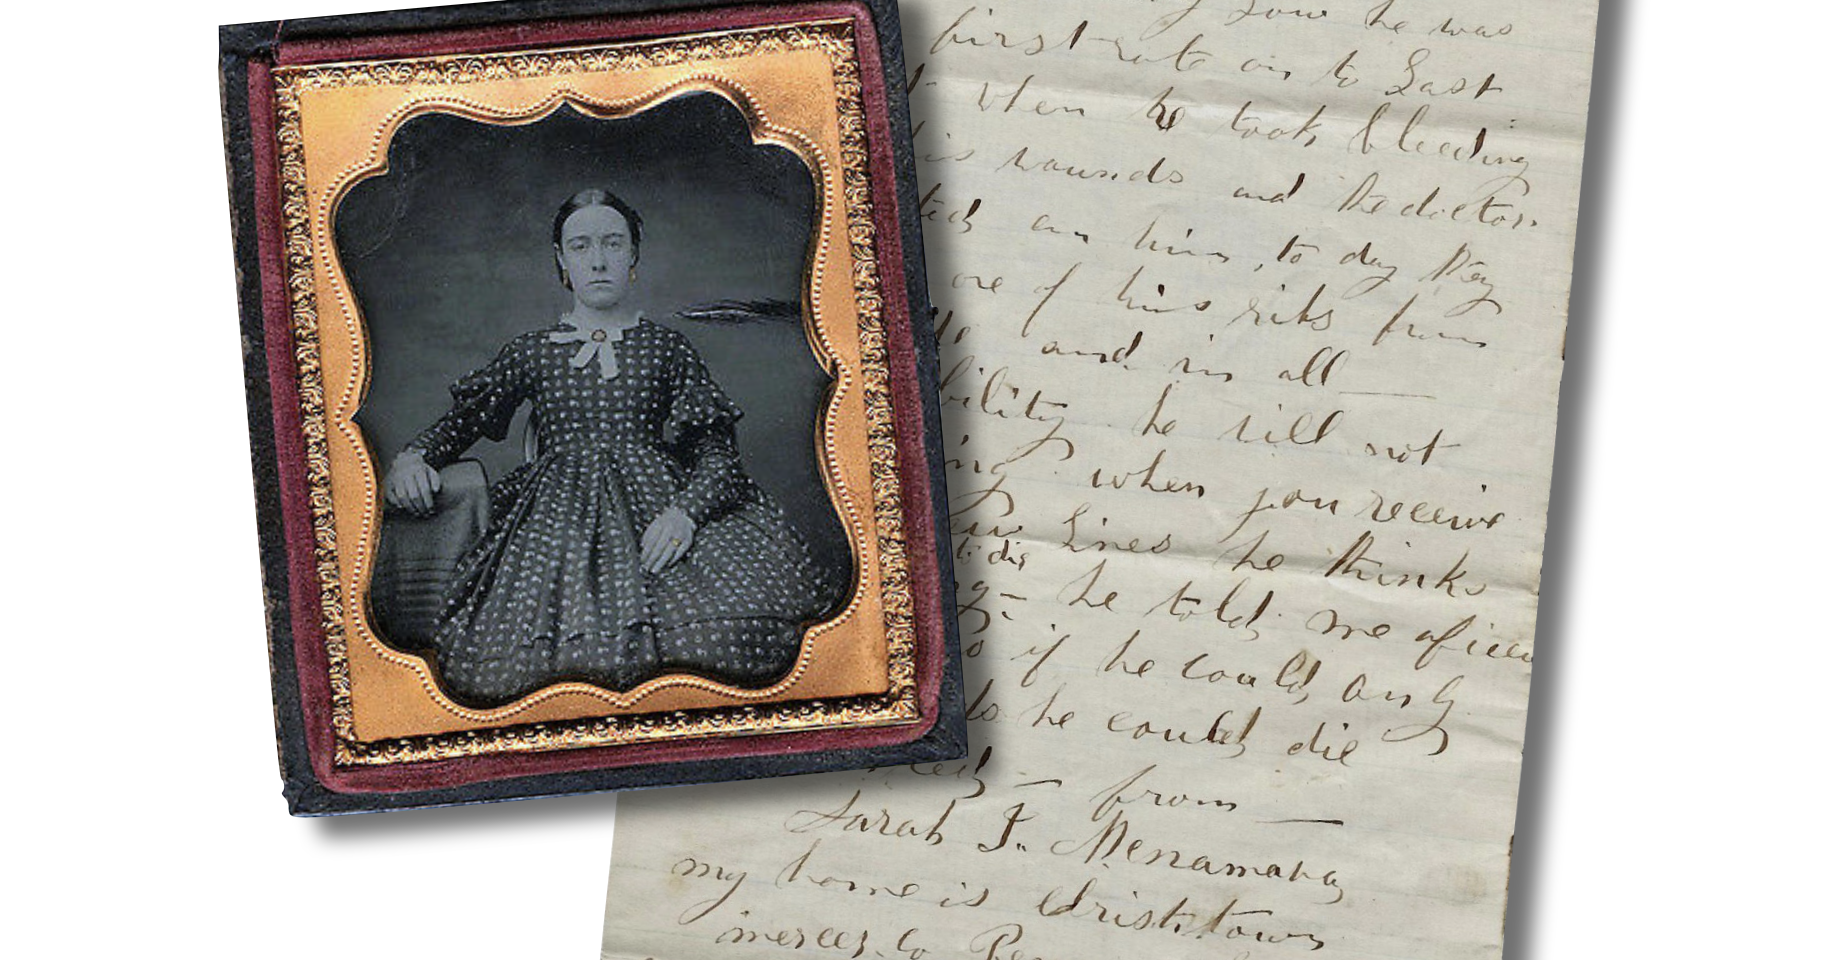 you he was
first rate on to Last
when he took bleeding
his wounds and the doctor
on him, to day they
one of his ribs from
and in all
bility he will not
when you receive
few Lines he thinks
to die
he told me
if he could only
he could die
from
Sarah J. McNamara
my home is
mercer Co